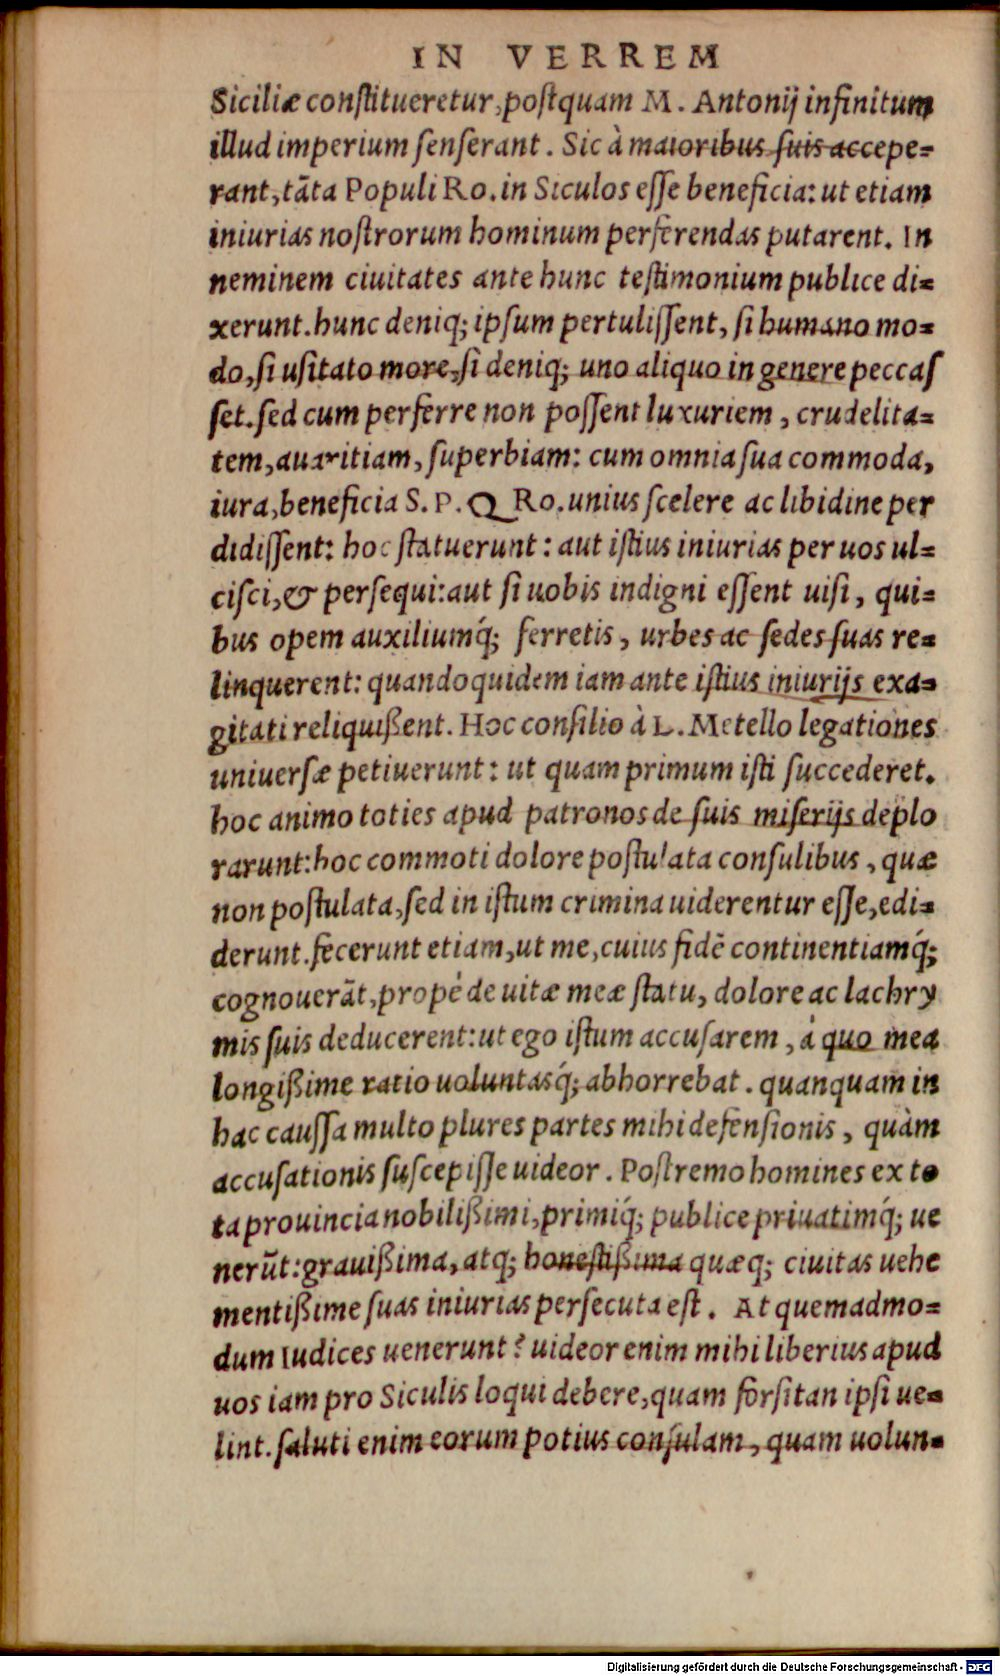 IN VERREM
Siciliæ conſtitueretur, poſtquam M. Antonij infinitum
illud imperium ſenſerant. Sic à maioribus ſuis accepe=
rant, tāta Populi Ro. in Siculos eſſe beneficia: ut etiam
iniurias noſtrorum hominum perferendas putarent. In
neminem ciuitates ante hunc teſtimonium publice di=
xerunt. hunc deniq; ipſum pertuliſſent, ſi humano mo=
do, ſi uſitato more, ſi deniq; uno aliquo in genere peccaſ
ſet. ſed cum perferre non poſſent luxuriem, crudelita=
tem, auaritiam, ſuperbiam: cum omnia ſua commoda,
iura, beneficia S. P. Q Ro. unius ſcelere ac libidine per
didiſſent: hoc ſtatuerunt: aut iſtius iniurias per uos ul=
ciſci, & perſequi: aut ſi uobis indigni eſſent uiſi, qui=
bus opem auxiliumq́; ferretis, urbes ac ſedes ſuas re=
linquerent: quandoquidem iam ante iſtius iniurijs exa=
gitati reliquißent. Hoc conſilio à L. Metello legationes
uniuerſæ petiuerunt: ut quam primum iſti ſuccederet.
hoc animo toties apud patronos de ſuis miſerijs deplo
rarunt: hoc commoti dolore poſtulata conſulibus, quæ
non poſtulata, ſed in iſtum crimina uiderentur eſſe, edi=
derunt. fecerunt etiam, ut me, cuius fidē continentiamq́;
cognouerāt, propè de uitæ meæ ſtatu, dolore ac lachry
mis ſuis deducerent: ut ego iſtum accuſarem, à quo mea
longißime ratio uoluntasq́; abhorrebat. quanquam in
hac cauſſa multo plures partes mihi defenſionis, quàm
accuſationis ſuſcepiſſe uideor. Poſtremo homines ex to
ta prouincia nobilißimi, primiq́; publice priuatimq́; ue
nerūt: grauißima, atq; honeſtißima quæq; ciuitas uehe
mentißime ſuas iniurias perſecuta eſt. At quemadmo=
dum Iudices uenerunt? uideor enim mihi liberius apud
uos iam pro Siculis loqui debere, quam forſitan ipſi ue=
lint. ſaluti enim eorum potius conſulam, quam uolun=
Digitalisierung gefördert durch die Deutsche Forschungsgemeinschaft - DFG